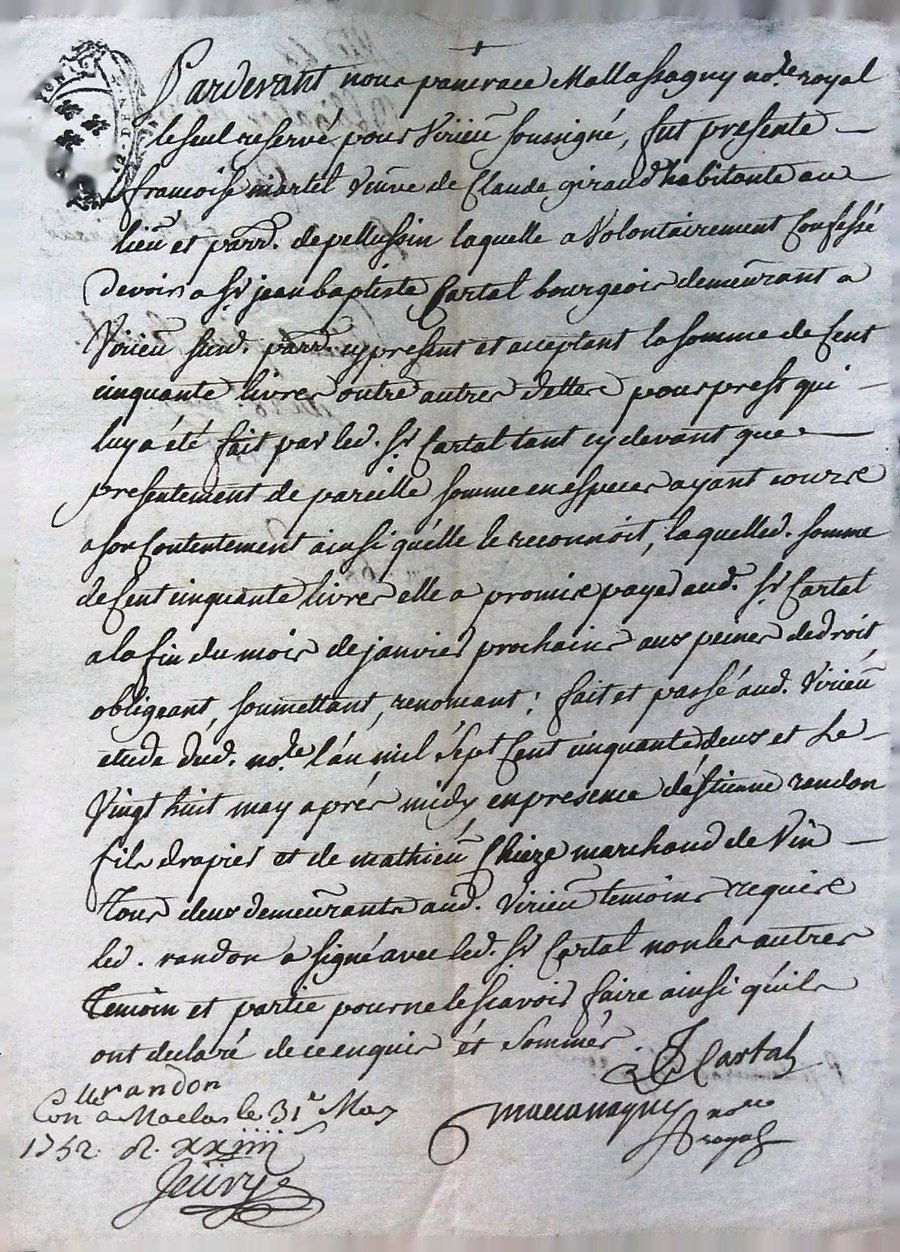 Pardevant nous pancrace Mallassagny no.re royal
le seul reservé pour Virieu soussigné, fut presente
francoise martel veuve de Claude giraud habitante au
lieu et parr. de pellussin laquelle a volontairement Confessé
devoir a Sr jean baptiste Cartal bourgeois demeurant a
Virieu susd. parr. cy present et acceptant la somme de Cent
cinquante livres outre autres dettes pour prest qui
luy a été fait par led. Sr Cartal tant cy devant que
presentement de pareille somme en especes ayant cours
a son Contentement ainsi qu'elle le reconnoit, laquelled. somme
de Cent cinquante livres elle a promis payer aud. Sr Cartal
a la fin du mois de janvier prochain aux peines de droit
obligeant, soumettant, renoncant; fait et passé aud. Virieu
etude dud. no.re l'an mil sept Cent cinquante deux et Le
vingt huit may aprés midy en presence d'éstienne randon
fils drapier et de mathieu Chieze marchand de Vin
Tous deux demeurants aud. Virieu temoins requis
led. randon a signé avec led. Sr Cartal non les autres
Temoin et partie pour ne le scavoir faire ainsi qu'ils
ont declaré de ce enquis et sommés.
Cartal
randon
Con.lle a Maclas le 31e May
1752. R. xxiiii s
no.re
royal